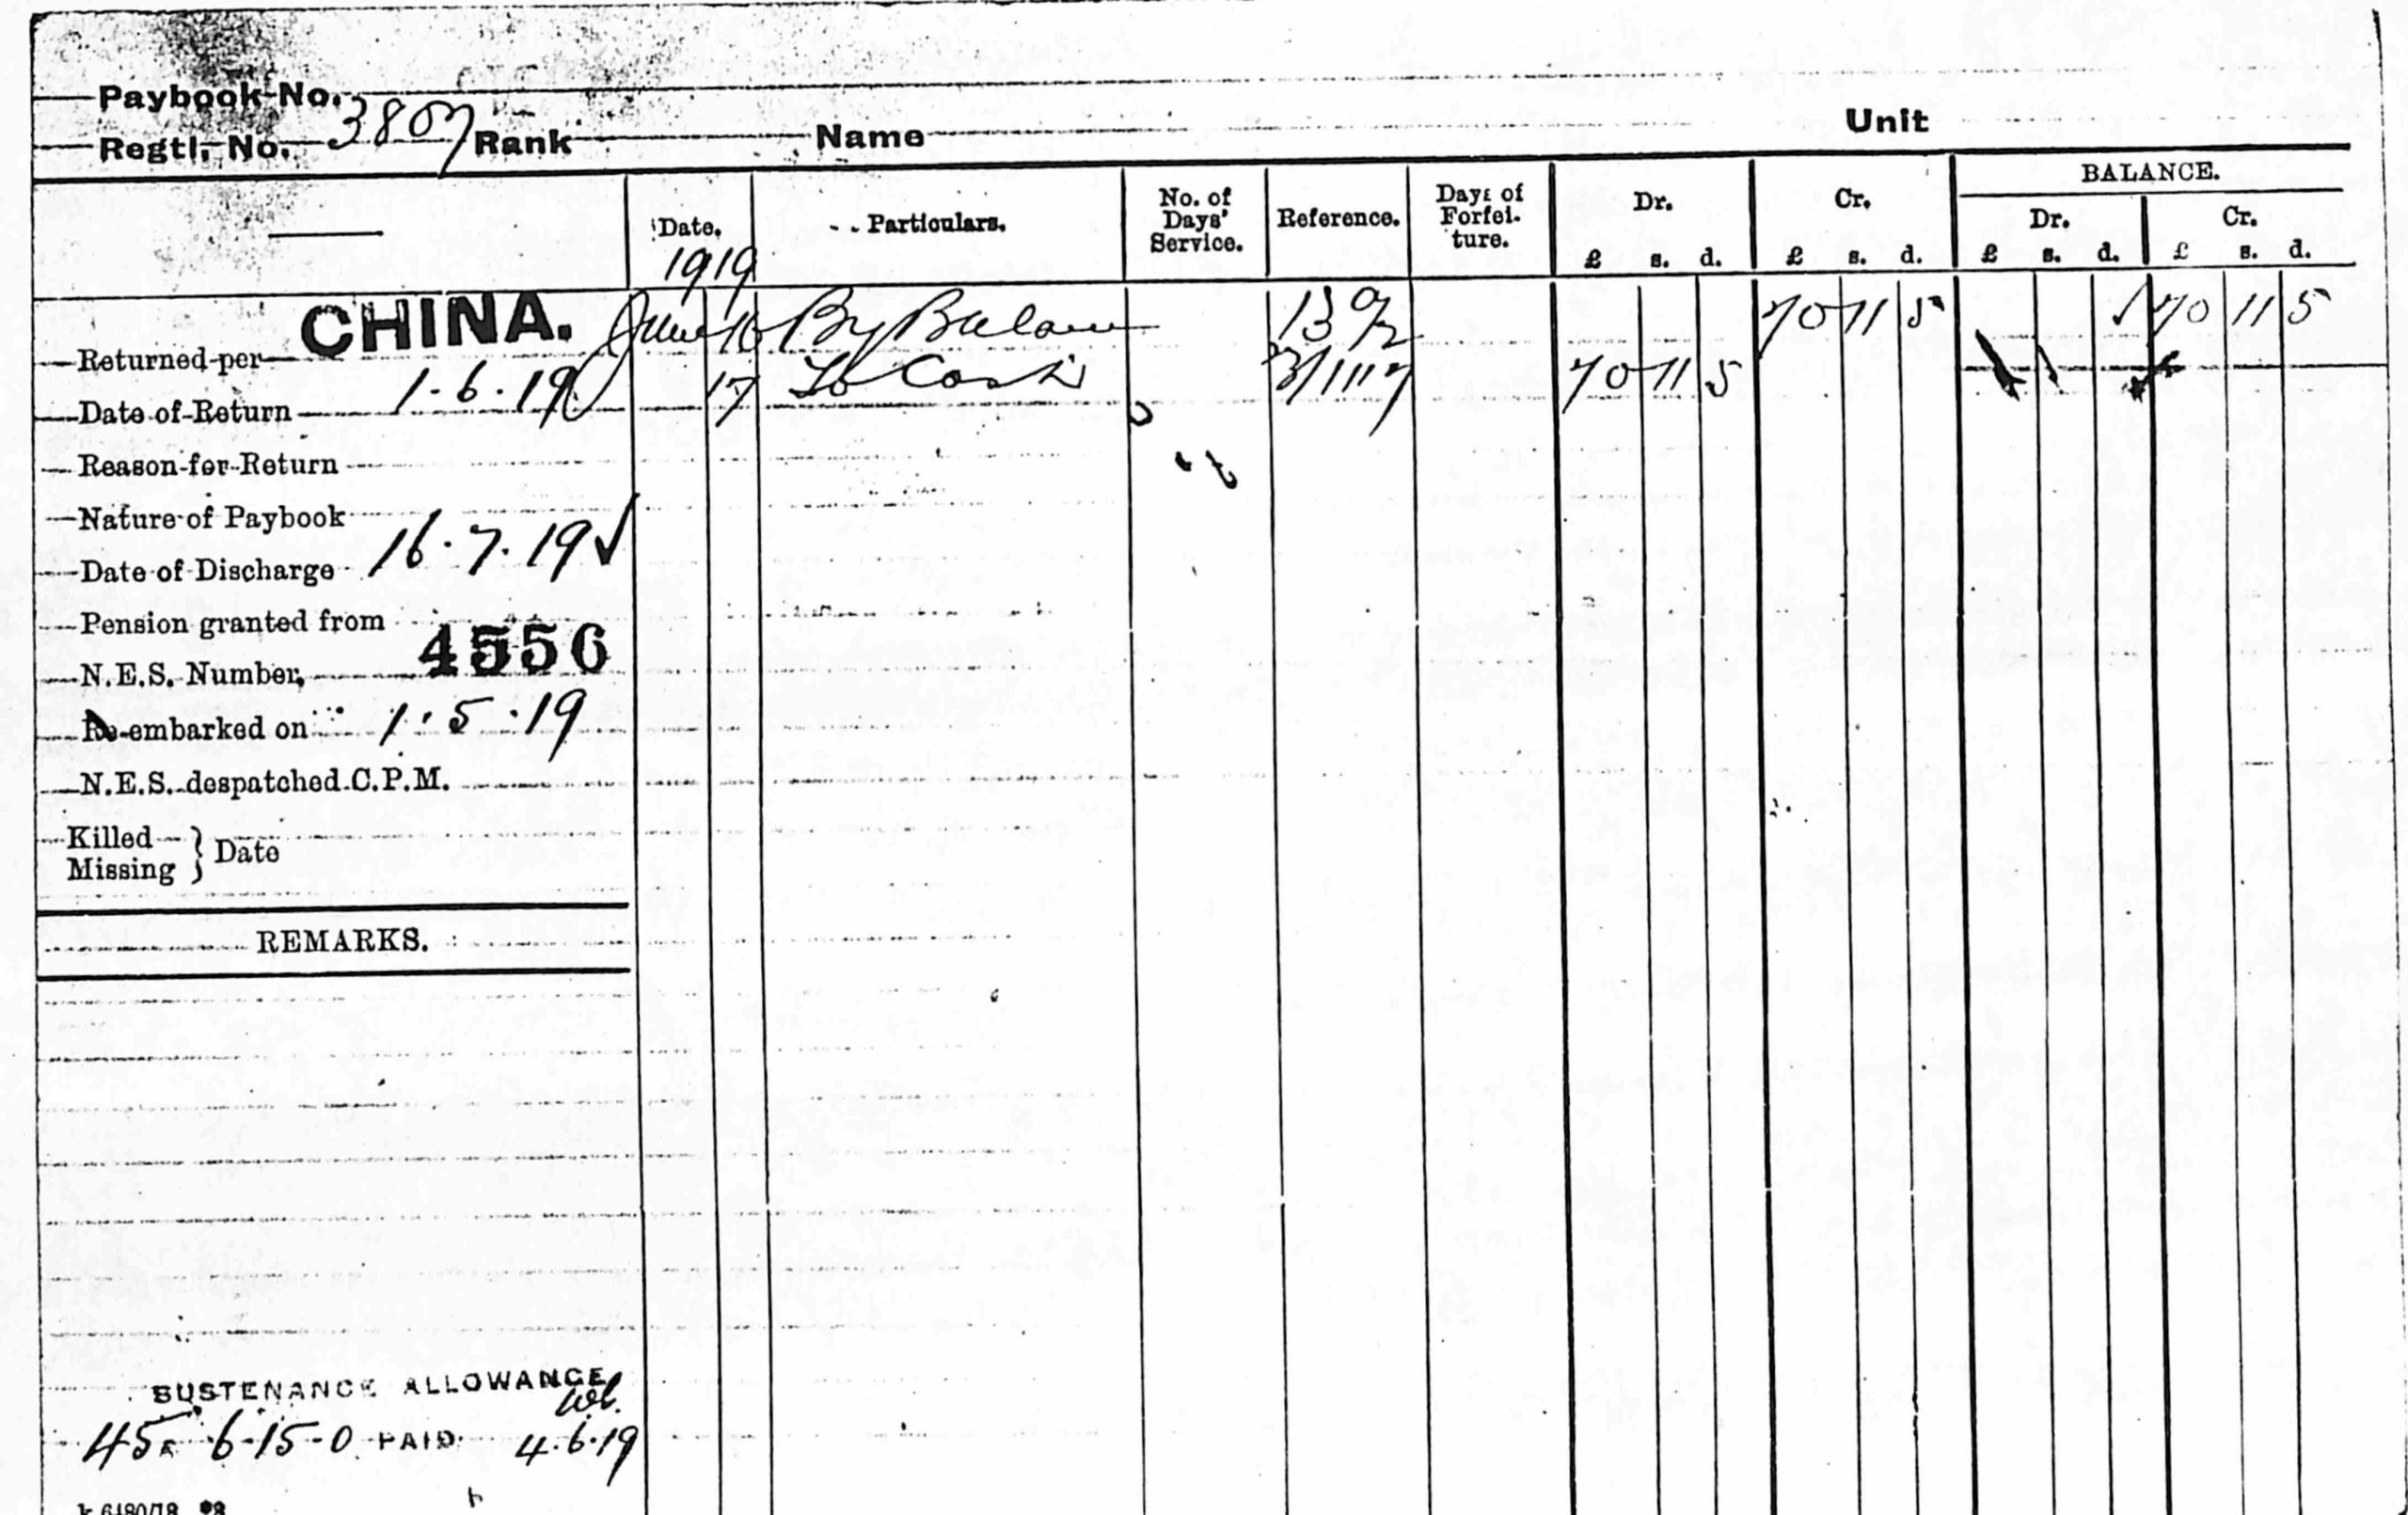 Paybook No.
Regtl. No. 3807 Rank Name Unit
Date. Particulars. No. of Days' Service. Reference. Days of Forfei-ture. Dr. £ s. d. Cr. £ s. d. BALANCE. Dr. £ s. d. Cr. £ s. d.
1919
Returned per CHINA. June 16 By Balance 70 11 5 70 11 5
Date of Return 1.6.19 17 To Cash 70 11 5
Reason for Return
Nature of Paybook
Date of Discharge 16.7.19
Pension granted from
N.E.S. Number, 4556
Re-embarked on 1.5.19
N.E.S. despatched C.P.M.
Killed
Missing } Date
REMARKS.
SUSTENANCE ALLOWANCE
45 6-15-0 PAID 4.6.19